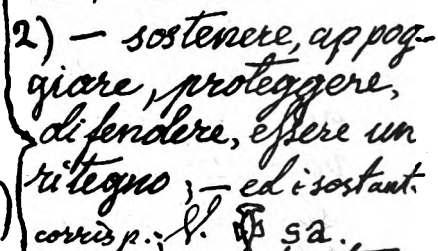 2) — sostenere, appog-
giare, proteggere,
difendere, essere un
ritegno; — ed i sostant.
corrisp.; V. şa.